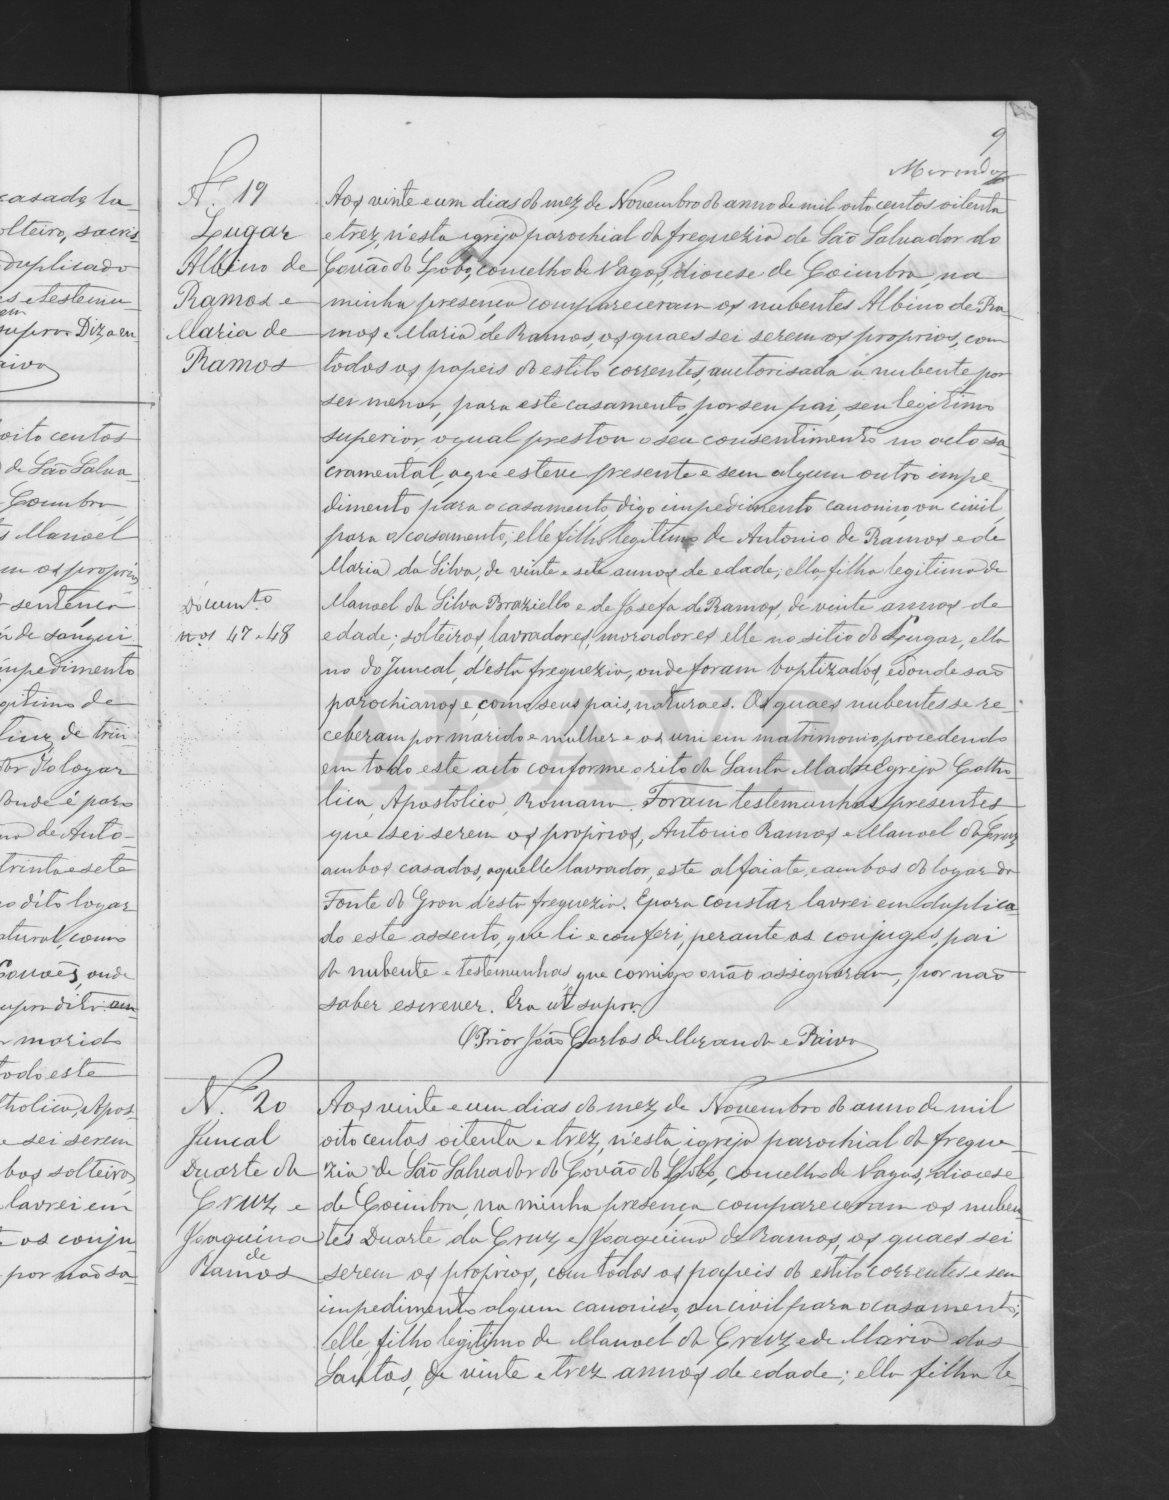 9
Miranda
N.º 19
Lugar
Albino de
Ramos e
Maria de
Ramos
Documt.os
nos 47 e 48
Aos vinte e um dias do mez de Novembro do anno de mil oito centos oitenta
e trez, n'esta igreja parochial da freguezia de São Salvador do
Covão do Lobo, concelho de Vagos, diocese de Coimbra, na
minha presença compareceram os nubentes Albino de Ra-
mos e Maria de Ramos, os quaes sei serem os proprios, com
todos os papeis do estilo correntes, auctorisada a nubente por
ser menor, para este casamento, por seu pai, seu legitimo
superior, o qual prestou o seu consentimento no acto sa-
cramental, a que esteve presente e sem algum outro impe-
dimento para o casamento, digo impedimento canonico, ou civil
para o casamento; elle filho legitimo de Antonio de Ramos e de
Maria da Silva, de vinte e sete annos de edade; ella filha legitima de
Manoel da Silva Braziello e de Josefa de Ramos, de vinte annos de
edade; solteiros, lavradores, moradores elle no sitio do Lugar, ella
no do Juncal, d'esta freguezia, onde foram baptizados, e donde são
parochianos e, como seus pais, naturaes. Os quaes nubentes se re-
ceberam por marido e mulher e os uni em matrimonio, procedendo
em todo este acto conforme o rito da Santa Madre Egreja Catho-
lica, Apostolica, Romana. Foram testemunhas presentes
que sei serem os proprios, Antonio Ramos e Manoel da Cruz
ambos casados, aquelle lavrador, este alfaiate, e ambos do logar da
Fonte do Grou d'esta freguezia. E para constar lavrei em duplica-
do este assento, que li e conferi, perante os conjuges, pai
da nubente e testemunhas que comigo o não assignaram, por não
saber escrever. Era ut supra.
O Prior João Carlos de Miranda e Paiva
N.º 20
Juncal
Duarte da
Cruz e
Joaquina
de
Ramos
Aos vinte e um dias do mez de Novembro do anno de mil
oito centos oitenta e trez, n'esta igreja parochial da fregue-
zia de São Salvador do Covão do Lobo, concelho de Vagos, diocese
de Coimbra, na minha presença compareceram os nuben-
tes Duarte da Cruz e Joaquina de Ramos, os quaes sei
serem os proprios, com todos os papeis do estilo correntes e sem
impedimento algum canonico, ou civil para o casamento;
elle, filho legitimo de Manoel da Cruz e de Maria dos
Santos, de vinte e trez annos de edade; ella filha le-